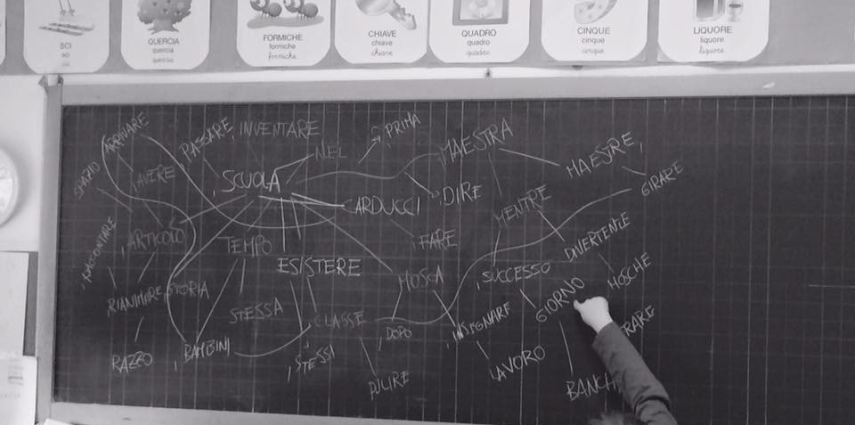 SCI
sci
sci
QUERCIA
quercia
quercia
FORMICHE
formiche
formiche
CHIAVE
chiave
chiave
QUADRO
quadro
quadro
CINQUE
cinque
cinque
LIQUORE
liquore
liquore
PASSARE
INVENTARE
PRIMA
NEL
MAESTRA
MAESTRE
AVERE
SCUOLA
CARDUCCI
DIRE
MENTRE
GIRARE
RACCONTARE
ARTICOLO
TEMPO
FARE
DIVERTENTE
ESISTERE
MOSCA
SUCCESSO
MOSCHE
RIANIMARE
STORIA
STESSA
CLASSE
DOPO
INSEGNARE
GIORNO
RAZZO
BAMBINI
STESSI
LAVORO
BANCHI